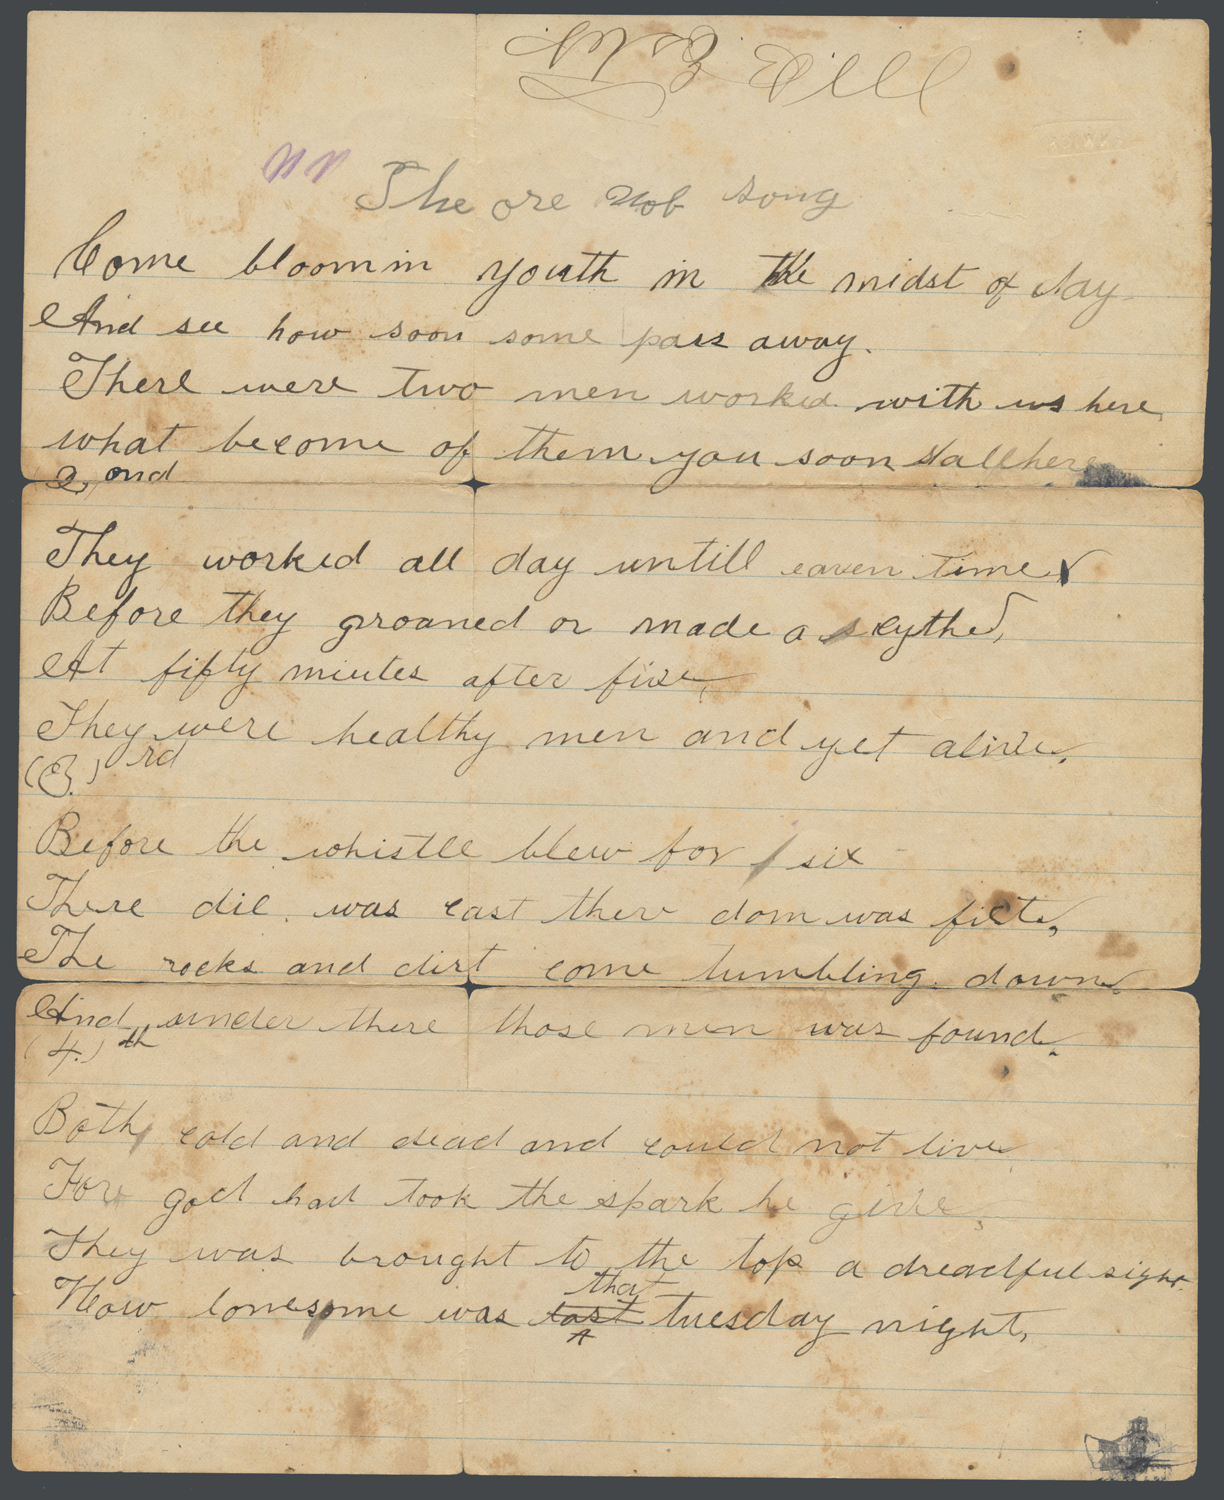 Dill
The ore nob song
Come bloomin youth in the midst of day
And see how soon some pass away.
There were two men worked with us here,
what become of them you soon shall here
2, ond
They worked all day untill eaven time
Before they groaned or made a scythe,
At fifty miutes after five,
They were healthy men and yet alive,
(3.) rd
Before the whistle blew for six
There die was cast there dom was fict,
The rocks and dirt come tumbling down,
And under there those men was found.
(4.) th
Both cold and dead and could not live
For god had took the spark he give,
They was brought to the top a dreadful sight
that
How lonesome was last tuesday night,